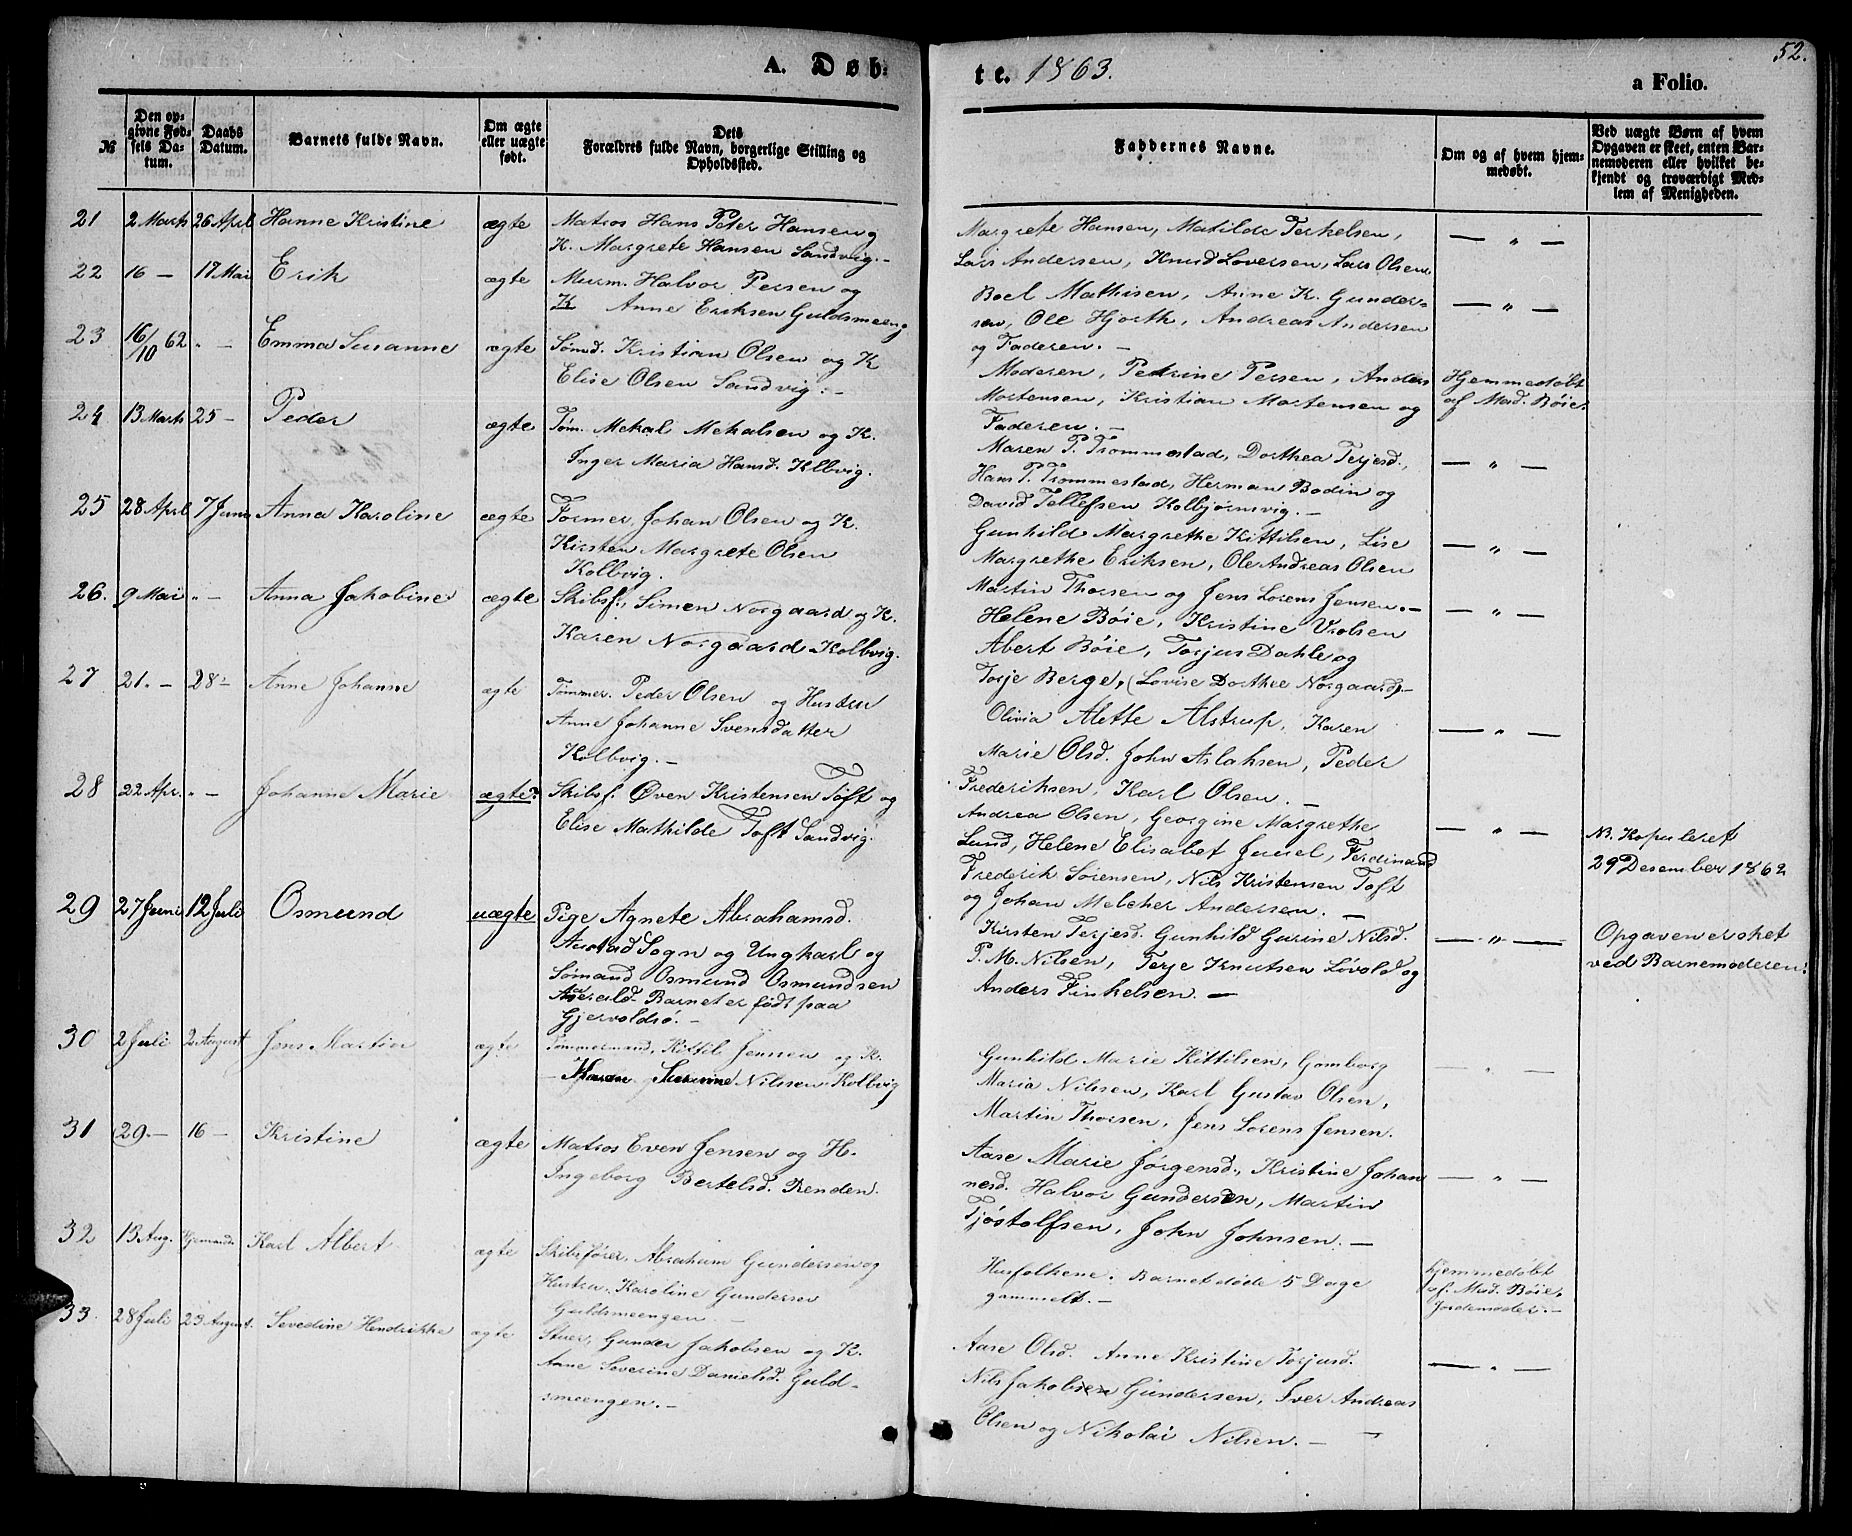 52.
A. Døb-
te. 1863.
a Folio.
№
Den op-
givne Fød-
sels Da-
tum.
Daabs
Datum.
Barnets fulde Navn.
Om ægte
eller uægte
født.
Dets
Forældres fulde Navn, borgerlige Stilling og
Opholdssted.
Faddernes Navne.
Om og af hvem hjem-
medøbt.
Ved uægte Børn af hvem
Opgaven er skeet, enten Bar-
nemoderen eller hvilket be-
kjendt og troværdigt Med-
lem af Menigheden.
21 2 Marts 26 April Hanne Kristine ægte Matros Hans Peter Hansen og
K. Margrete Hansen Sandvig.-
Margrete Hansen, Matilde Terkelsen,
Lars Andersen, Knud Loversen, Lars Olsen
— " —
22 16 — 17 Mai Erik ægte Murm. Halvor Persen og
K Anne Eriksen Guldsmeeng
Boel Mathisen, Anne K. Gunder-
sen, Ole Hjorth, Andreas Andersen
og Faderen. —
— " —
23 16/10 62 " — Emma Susanne ægte Sømd. Kristian Olsen og K
Elise Olsen Sandvig.-
Moderen, Petrine Persen, Anders
Mortensen, Kristian Mortensen og
Faderen. —
Hjemmedøbt
af Mad. Bøie.
24 13 Marts 25 — Peder ægte Tøm. Mekal Mekalsen og K.
Inger Maria Hansd. Kolbvig.
Maren P. Trommestad, Dorthea Terjesd.,
Hans T. Trommestad, Herman Bodin og
David Tellefsen Kolbjørnsvig. —
— " —
25 28 April 7 Juni Anna Karoline ægte Tømer, Johan Olsen og K.
Kirsten Margrete Olsen
Kolbvig.
Gunhild Margrethe Kittilsen, Lise
Margrethe Eriksen, Ole Andreas Olsen
Martin Thorsen og Jens Lorens Jensen. —
— " —
26. 9 Mai " — Anna Jakobine ægte Skibsf., Simen Norgaard og K.
Karen Norgaard Kolbvig.
Helene Bøie, Kristine Vrolsen
Abert Bøie, Torjus Dahle og
Torje Berge, (Lovise Dorthee Norgaard) —
— " —
27 21. — 28 — Anne Johanne ægte Tømmer. Peder Olsen og Hustru
Anne Johanne Svensdatter
Kolbvig. —
Olivia Alette Alstrup, Karen
Marie Olsd. John Aslaksen, Peder
Frederiksen, Karl Olsen. —
— " —
28 22 Apr. " — Johanne Marie ægte? Skibsf. Øven Kristensen Toft og
Elise Mathilde Toft Sandvig.
Andrea Olsen, Georgine Margrethe
Lund, Helene Elisabet Juuel, Ferdinand
Frederik Sørensen, Nils Kristensen Toft
og Johan Melcher Andersen. —
— " —
NB. Kopuleret
29 Desember 1862
29 27 Juni 12 Juli Osmund uægte Pige Agnete Abrahamsd.
Austad Sogn og Ungkarl og
Sømand Osmund Osmundsen
Barnet er født paa
Gjervoldsø. —
Kirsten Terjesd. Gunhild Gurine Nilsd.
P. M. Nilsen, Terje Knutsen Løvold og
Anders Finkelsen. —
— " —
Opgaven er sket
ved Barnemoderen.
30 2 Juli 2 August Jens Martin ægte Tømmermand, Kittil Jensen og K.
— Maren Nilssen Kolbvig
Gunhild Marie Kittilsen, Gomborg
Maria Nilssen, Karl Gustav Olsen,
Martin Thorsen, Jens Lorens Jensen.
— " —
31 29. — 16 — Kristine ægte Matros Even Jensen og H.
Ingeborg Bertelsd. Renden.
Aase Marie Jørgensd., Kristine Johan
nesd. Halvor Gundersen, Martin
Tjøstolfsen, John Johnsen. —
— " —
32 13 Aug. Karl Albert ægte Skibsfører, Abraham Gundersen og
Hustru, Karoline Gundersen
Guldsmeengen. —
Husfolkene. Barnet døde 5 Dage
gammelt. —
Hjemmedøbt
af. Mad. Bøie,
Jordemoder. —
33. 28 Juli 23 August. Sevedine Hendrikke ægte Stuer, Gunder Jakobsen og K.
Anne Severine Danielsd. Guld-
smeengen. —
Aase Olsd. Anne Kristine Torjusd.
Nils Jakobsen Gundersen, Iver Andreas
Olsen og Nikolai Nilsen. —
— " —